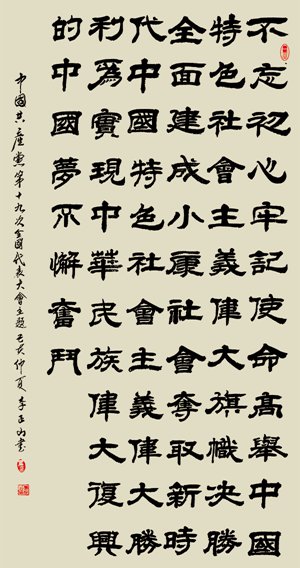 不忘初心牢記使命高舉中國
特色社會主義偉大旗幟决勝
全面建成小康社會奪取新時
代中國特色社會主義偉大勝
利爲實現中華民族偉大復興
的中國夢不懈奮鬥
中國共產黨第十九次全國代表大會主題己亥仲夏李書